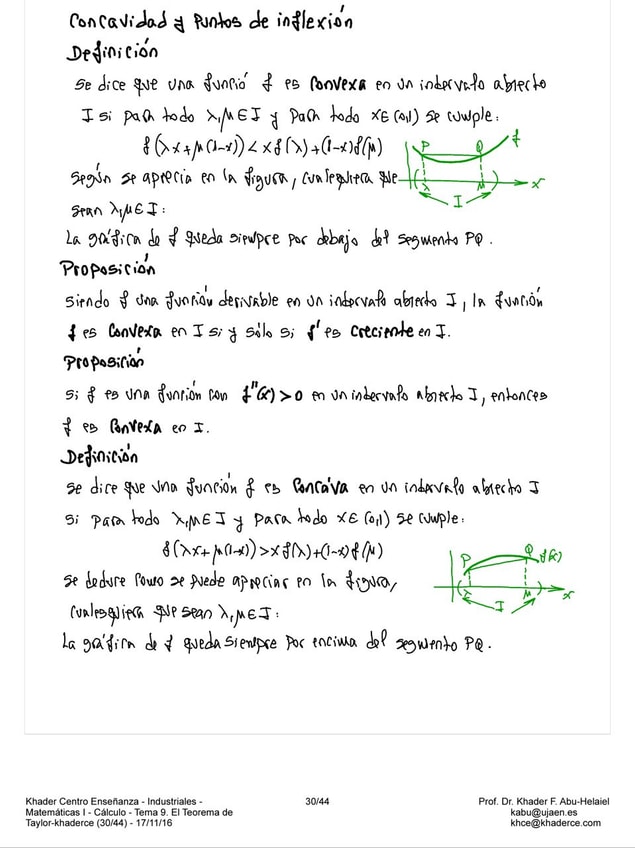 Concavidad y Puntos de inflexión
Definición
Se dice que una funció f es Convexa en un intervalo abierto
I si para todo λ,μ∈I y para todo x∈(0,1) se cumple:
f(λx+μ(1-x))<xf(λ)+(1-x)f(μ)
P Q f
Según se aprecia en la figura, cualesquiera que
λ μ x
I
sean λ,μ∈I:
La gráfica de f queda siempre por debajo del segmento PQ.
Proposición
Siendo f una función derivable en un intervalo abierto I, la función
f es Convexa en I si y sólo si f' es Creciente en I.
Proposición
Si f es una función con f''(x)>0 en un intervalo abierto I, entonces
f es Convexa en I.
Definición
Se dice que una función f es Concáva en un intervalo abierto I
Si para todo λ,μ∈I y para todo x∈(0,1) se cumple:
f(λx+μ(1-x))>xf(λ)+(1-x)f(μ)
P Q f(x)
Se deduce como se puede apreciar en la figura,
λ μ x
I
Cualesquiera que sean λ,μ∈I:
La gráfica de f queda siempre por encima del segmento PQ.
Khader Centro Enseñanza - Industriales -
Matemáticas I - Cálculo - Tema 9. El Teorema de
Taylor-khaderce (30/44) - 17/11/16
30/44
Prof. Dr. Khader F. Abu-Helaiel
kabu@ujaen.es
khce@khaderce.com